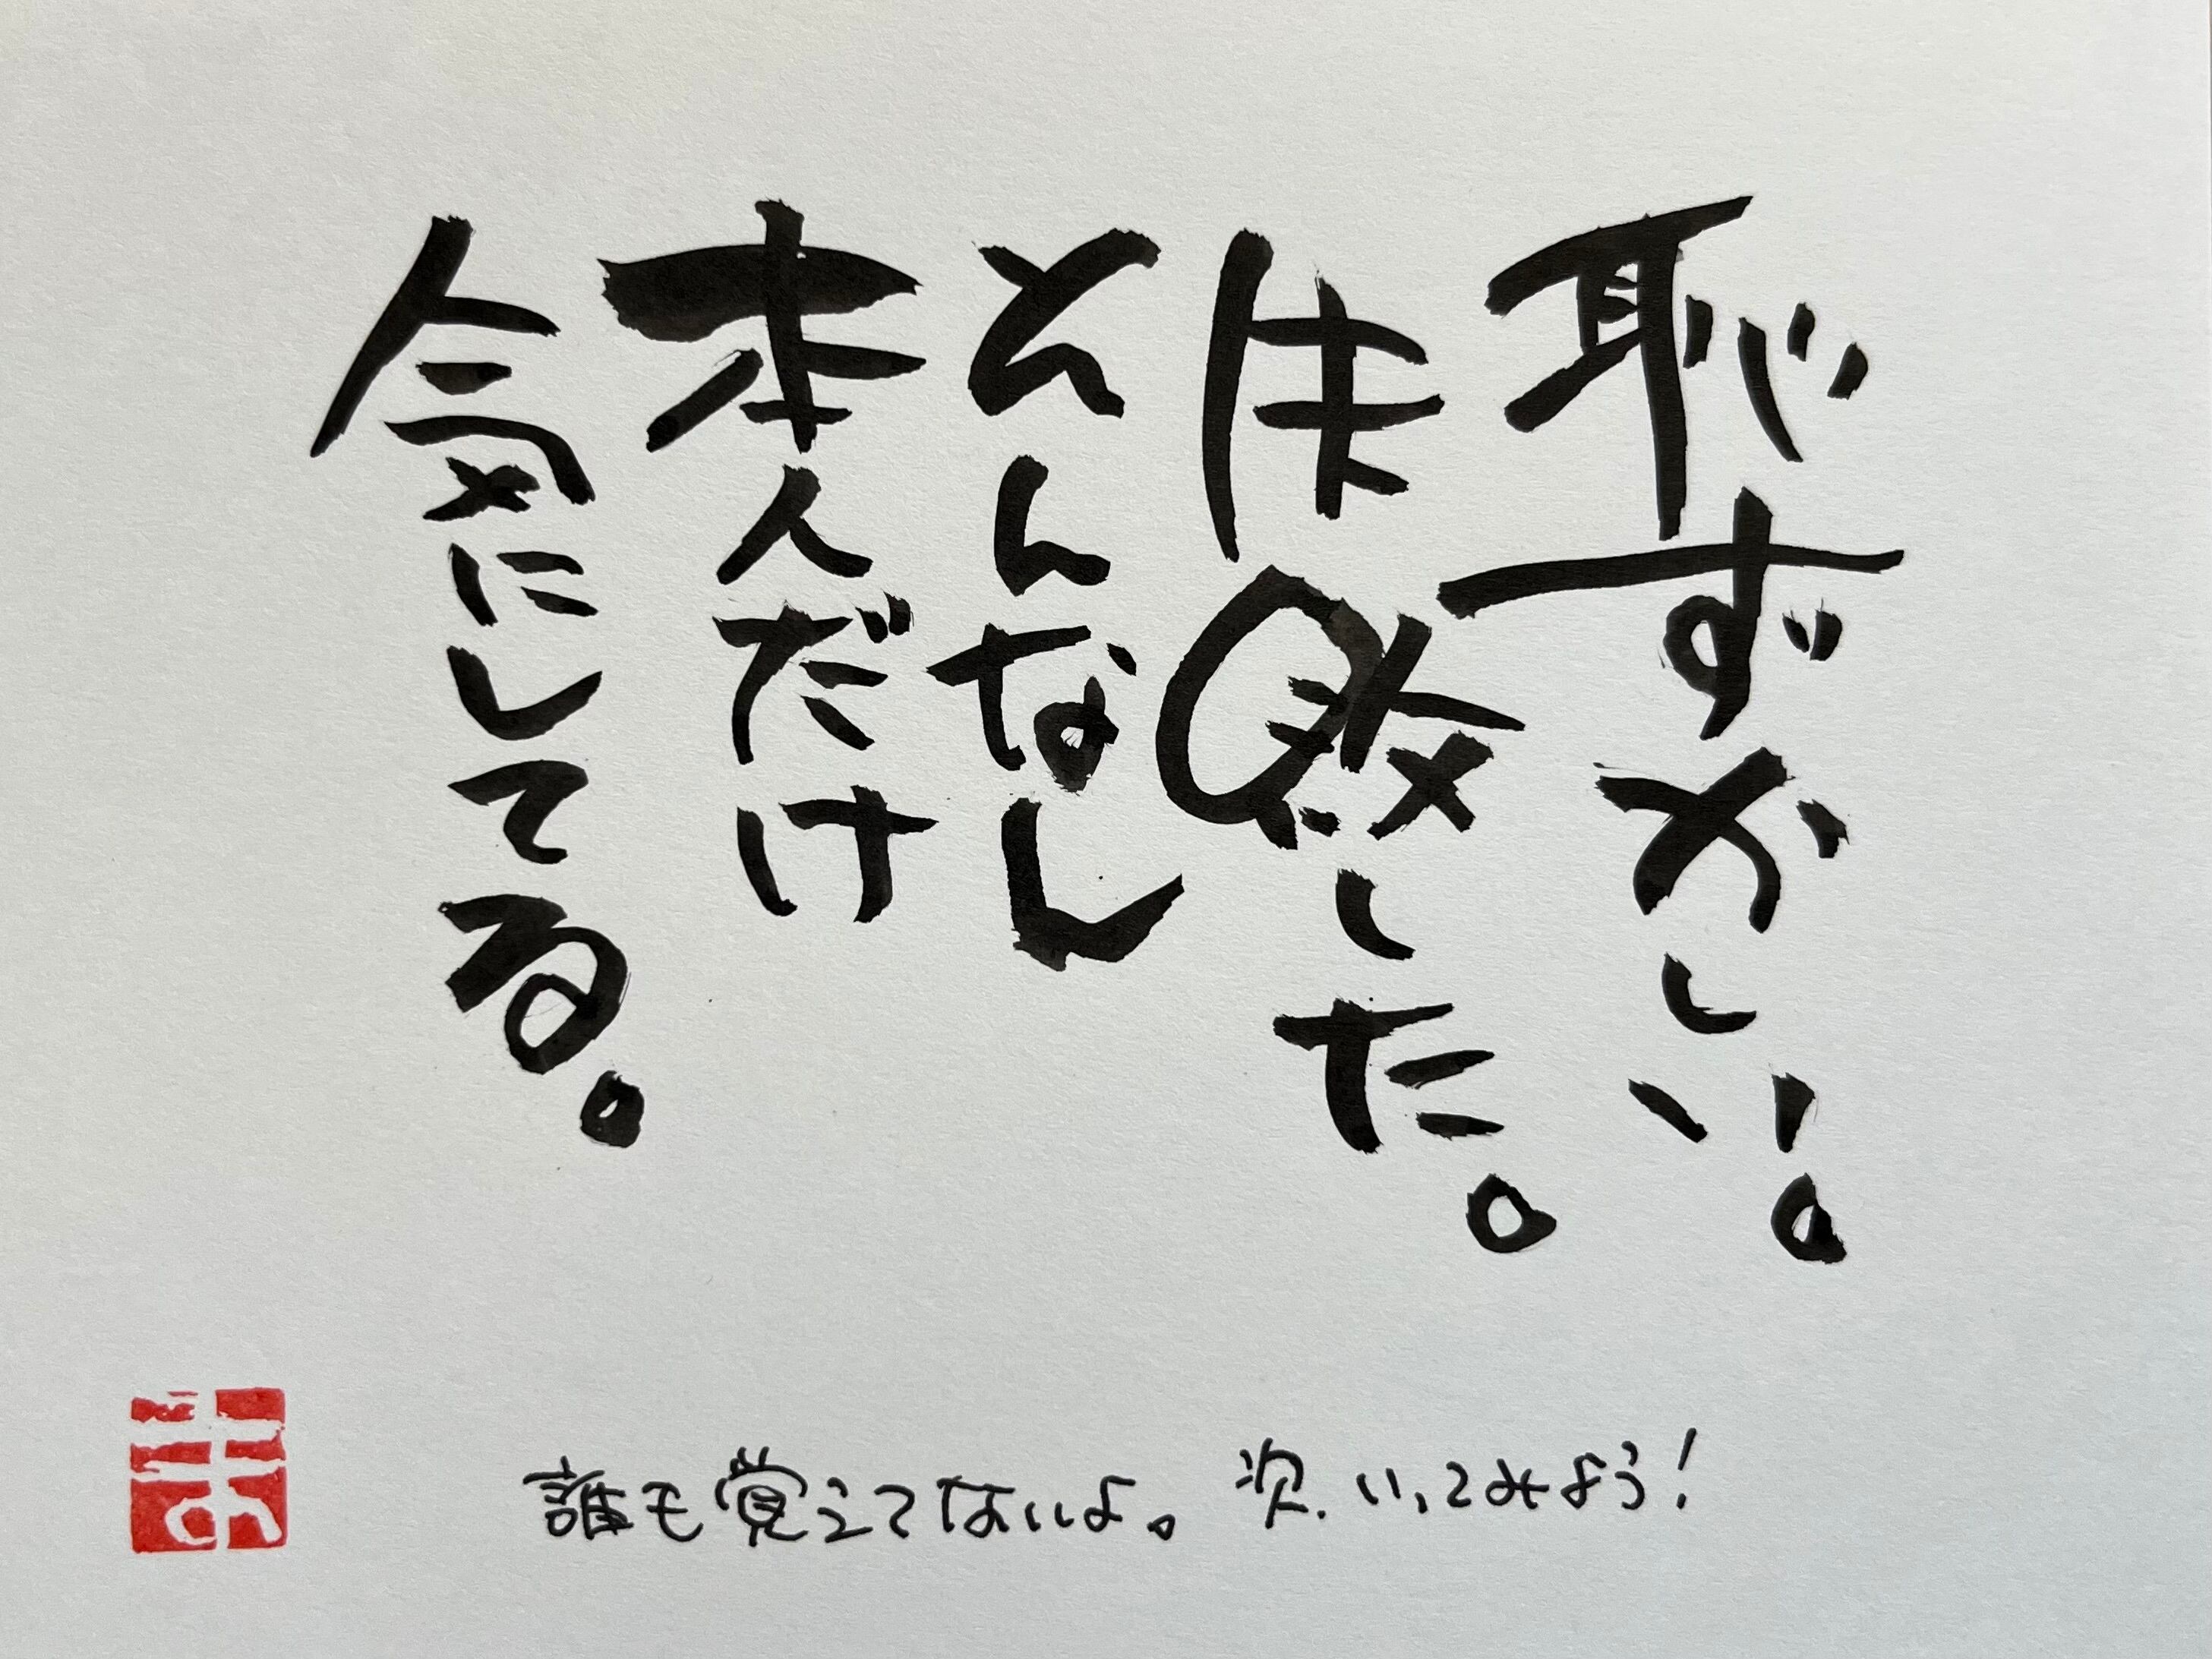 恥ずかしい。
失敗した。
そんなん なし
本人だけ
気にしてる。
誰も覚えてないよ。次、いってみよう!
ま